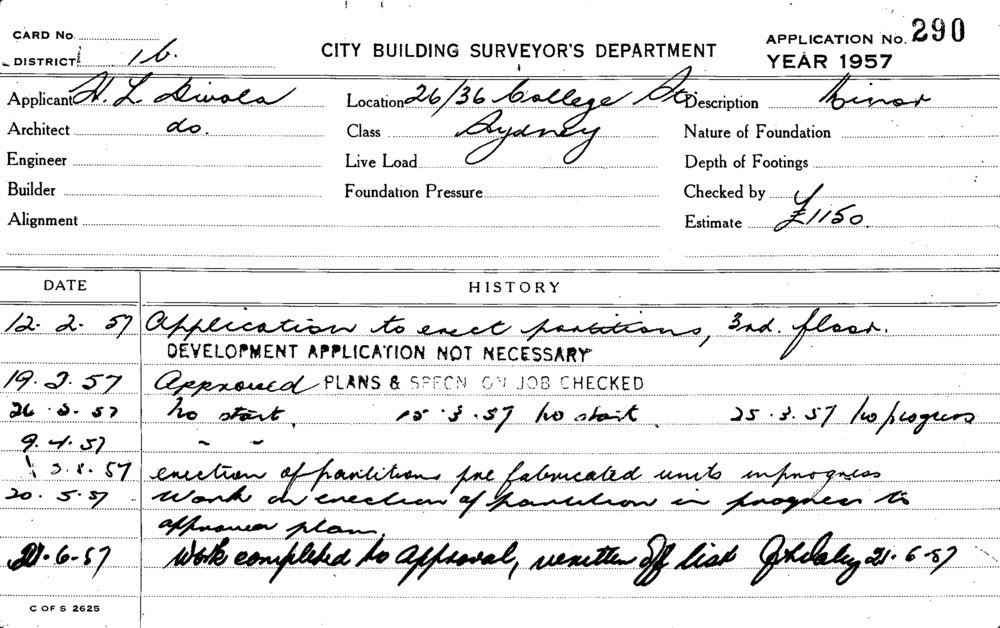 CARD No.
CITY BUILDING SURVEYOR'S DEPARTMENT
APPLICATION No. 290
DISTRICT 1b.
YEAR 1957
Applicant H. L. Divola Location 26/36 College St. Description Minor
Architect do. Class Sydney Nature of Foundation
Engineer Live Load Depth of Footings
Builder Foundation Pressure Checked by
Alignment Estimate £1150.
DATE HISTORY
12. 2. 57 Application to erect partitions, 3rd. floor.
DEVELOPMENT APPLICATION NOT NECESSARY
19. 2. 57 Approved PLANS & SPECN ON JOB CHECKED
26. 2. 57 No start. 15. 3. 57 No start. 25. 3. 57 No progress
9. 4. 57 " "
57 erection of partitions pre fabricated units in progress
20. 5. 57 Work on erection of partition in progress to
approved plan.
21. 6. 57 Work completed to approval, written off list 21. 6. 57
C OF S 2625